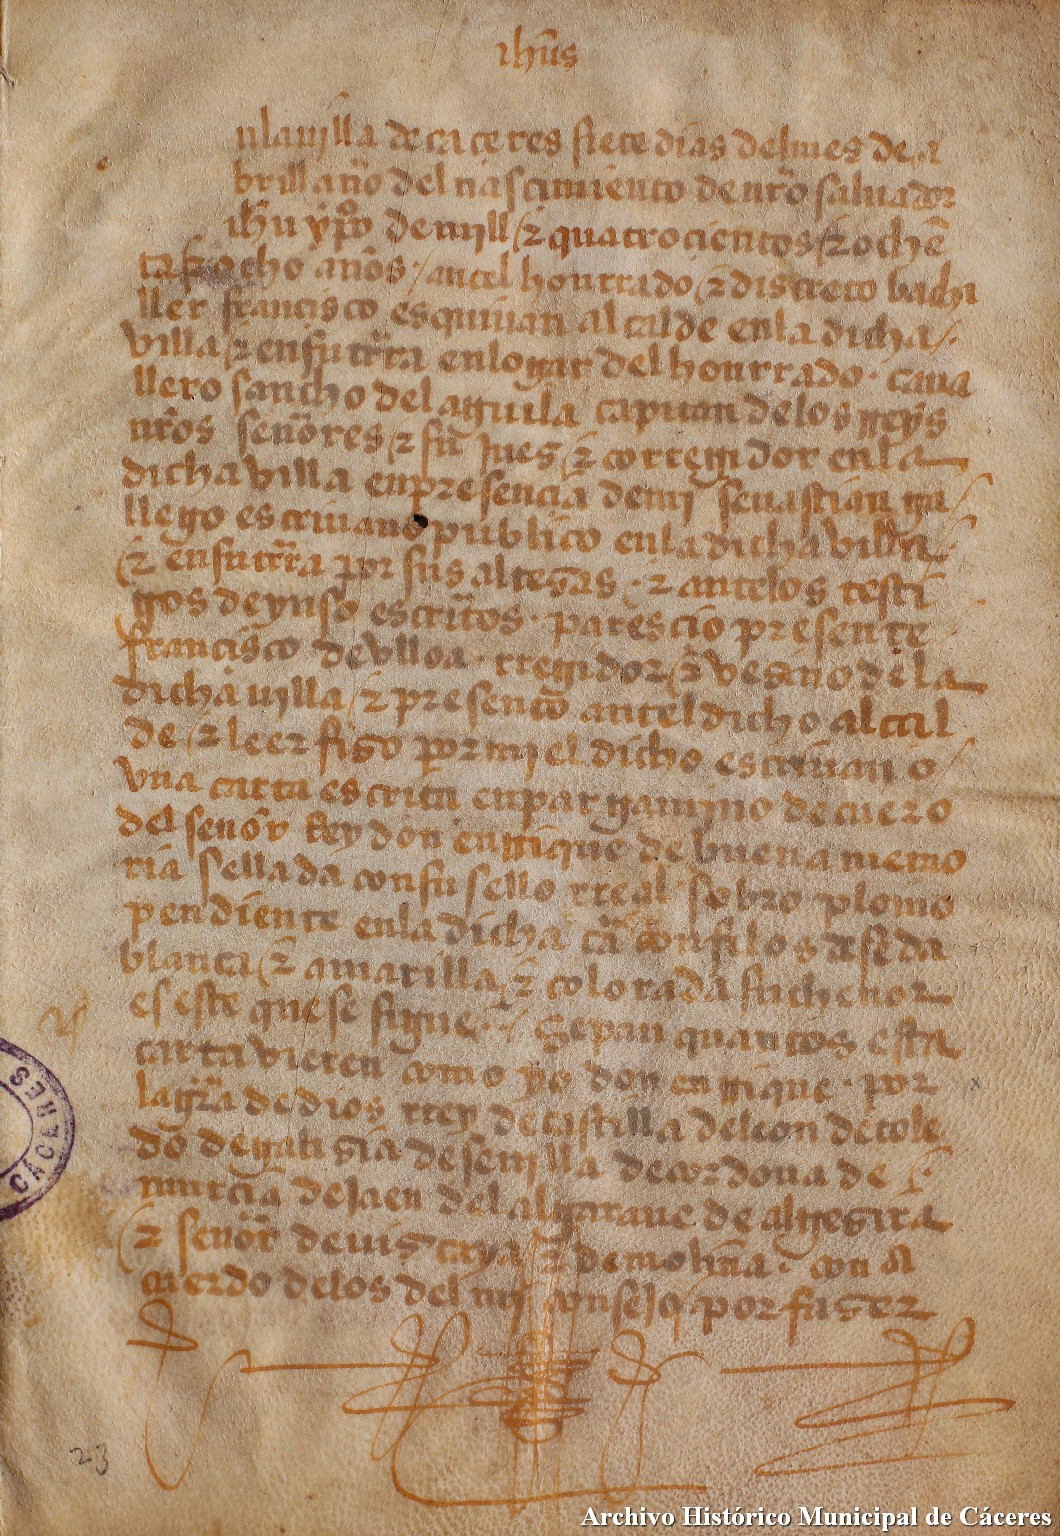 ihũs
n la villa de caceres siete dias del mes de a
brill año del nascimiento de nrõ saluador
ihũ xpõ de mill & quatrocientos & ochẽ
ta & ocho años / antel honrrado & discreto bachi
ller francisco esquiuan alcalde en la dicha /.
villa & en su trrã en logar del honrrado caua
llero sancho del aguila capitan delos rreyẽs
nrõs señores & su jues & corregidor en la
dicha villa en presencia de mi seuastian ga
llego escriuano publico en la dicha villa
& en su trrã por sus altesãs & ante los testi
gos de yuso escritõs parescio presente
francisco de vlloa rregidor & vesino de la
dicha villa & presento antel dicho alcal
de & leer fiso por mi el dicho escriuano
vna carta escrita en pargamino de cuero
del señor Rey don enrrique de buena memo
ria sellada con su sello rreal sobro plomo
pendiente en la dicha crã con filos de seda
blanca & amarilla & colorada su thenor
es este que se sigue / Sepan quantos esta
carta vieren como yo don enrrique por
la grã de dios rrey de castilla de leon de tole
do de galisia de seuilla de cordoua de
murcia de Jaen del algaraue de algesira
& señor de viscaya & de molina con a
cuerdo delos del mi consejo por faser
23
CACERES
Archivo Histórico Municipal de Cáceres